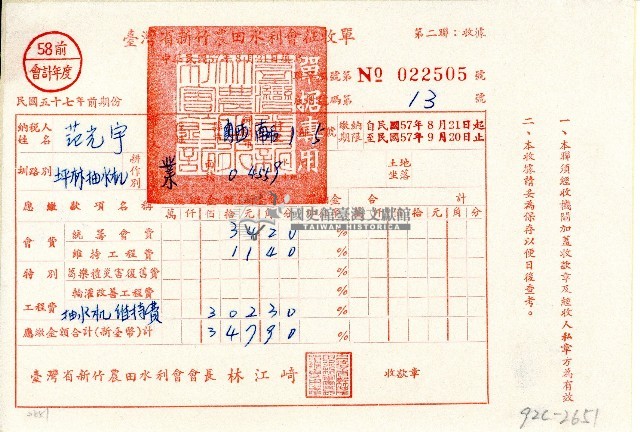 58前
會計年度
臺灣省新竹農田水利會徵收單
第二聯:收據
單據專用
第 № 022505 號
民國五十七年前期份
第 13 號
納稅人姓名 范光宇
1 5
繳納期限 自民國57年8月21日起 至民國57年9月20日止
圳路別 坪林抽水机
耕作別 業
0.4559
土地坐落
應繳款項名稱
萬 仟 佰 拾 元 角 分
合計
會費 統籌會費 3420
維持工程費 1140
特別 葛樂禮災害復舊費
工程費 輪灌改善工程費
抽水机維持費 30230
應繳金額合計(新臺幣)計 34790
臺灣省新竹農田水利會會長 林江﨑
收款章
一、本聯須經收機關加蓋收款章及經收人私章方為有效
二、本收據請妥為保存以便日後查考。
國史館臺灣文獻館
TAIWAN HISTORICA
2651
92C-2651